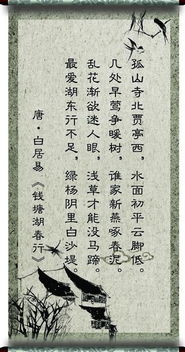 孤山寺北贾亭西，水面初平云脚低。
几处早莺争暖树，谁家新燕啄春泥。
乱花渐欲迷人眼，浅草才能没马蹄。
最爱湖东行不足，绿杨阴里白沙堤。
唐·白居易《钱塘湖春行》